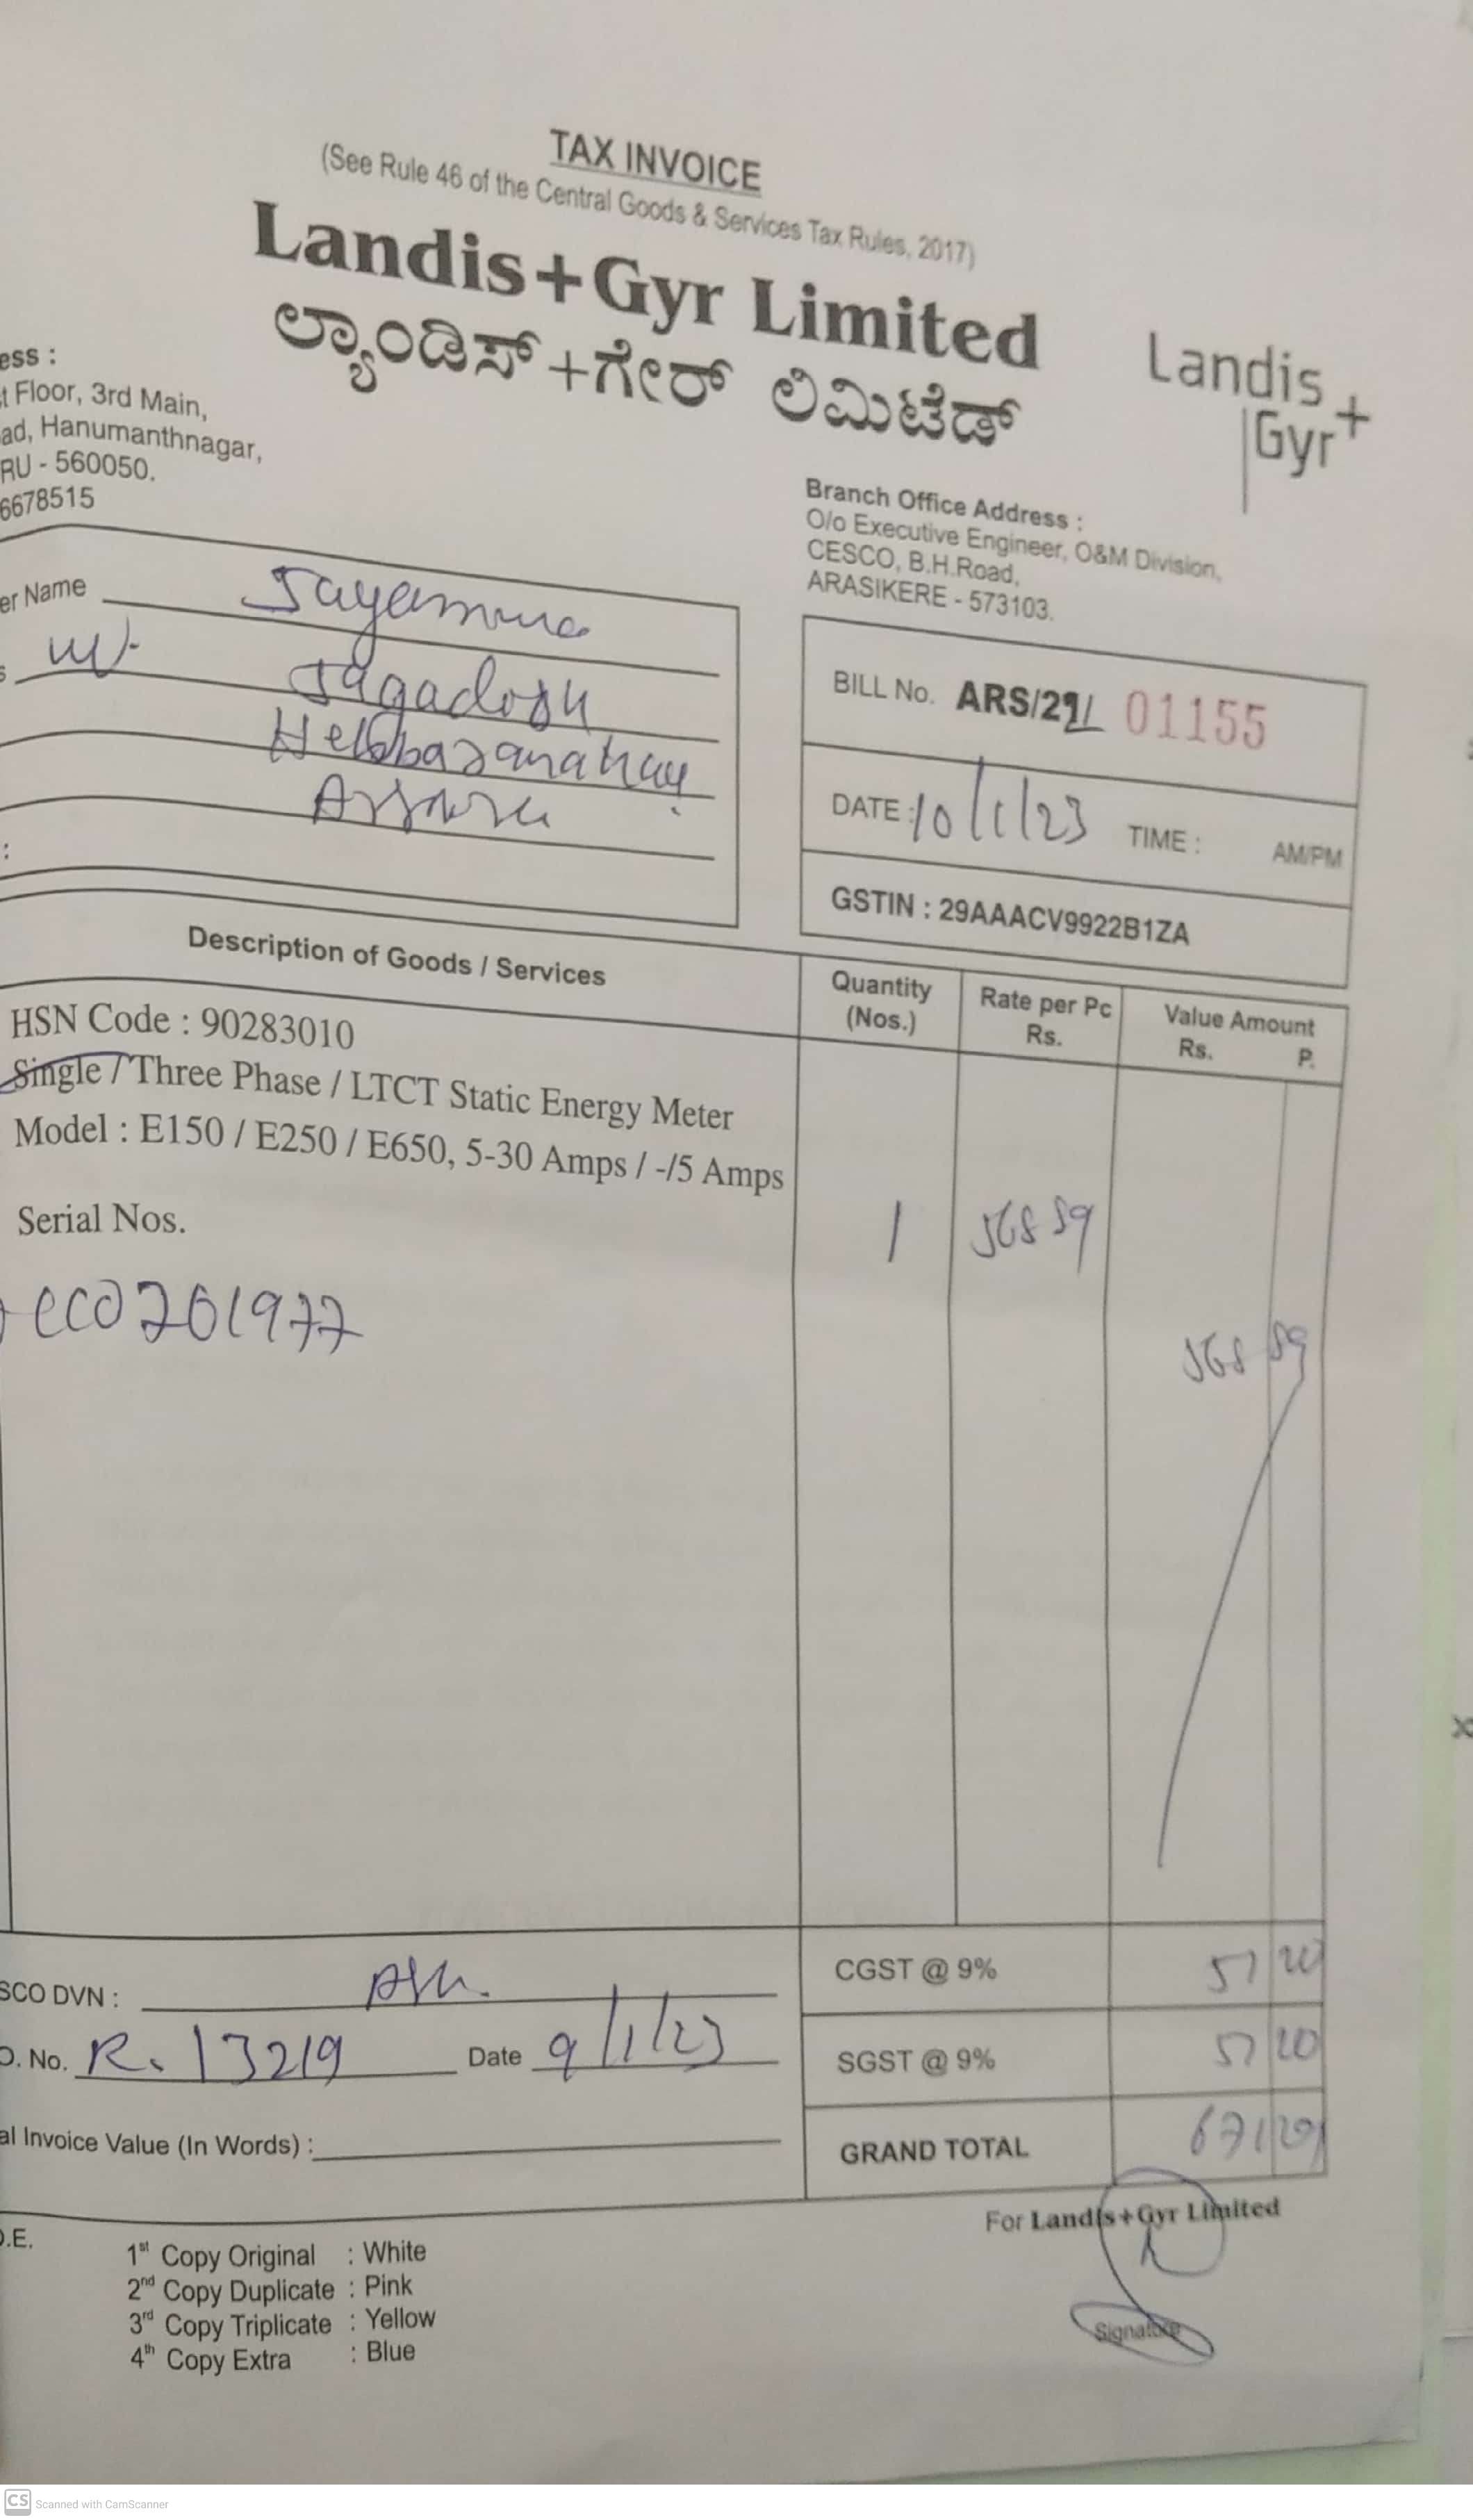 TAX INVOICE
(See Rule 46 of the Central Goods & Services Tax Rules, 2017)
Landis+Gyr Limited
ಲ್ಯಾಂಡಿಸ್+ಗೇರ್ ಲಿಮಿಟೆಡ್
Landis+
Gyr
ess :
t Floor, 3rd Main,
ad, Hanumanthnagar,
RU - 560050.
6678515
Branch Office Address :
O/o Executive Engineer, O&M Division,
CESCO, B.H.Road,
ARASIKERE - 573103.
er Name Jayamma
Jagadosh
:
BILL No. ARS/22/ 01155
DATE : 10/1/23 TIME : AM/PM
GSTIN : 29AAACV9922B1ZA
Description of Goods / Services
Quantity (Nos.)
Rate per Pc Rs.
Value Amount Rs. P.
HSN Code : 90283010
Single / Three Phase / LTCT Static Energy Meter
Model : E150 / E250 / E650, 5-30 Amps / -/5 Amps
Serial Nos.
1 568 89
ecо201977
568 89
SCO DVN :
CGST @ 9% 51 20
O. No. R. 13219 Date 9/1/23
SGST @ 9% 51 20
al Invoice Value (In Words) :
GRAND TOTAL 671 29
For Landis+Gyr Limited
Signature
O.E.
1st Copy Original : White
2nd Copy Duplicate : Pink
3rd Copy Triplicate : Yellow
4th Copy Extra : Blue
CS Scanned with CamScanner